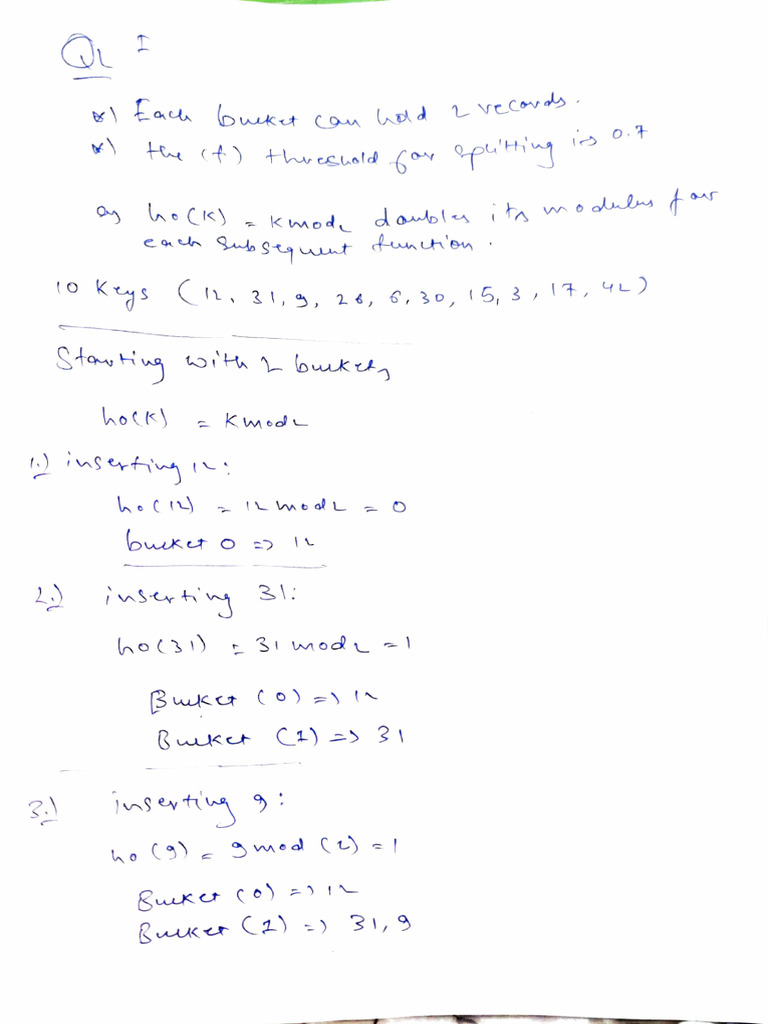 Q2 I
*) Each bucket can hold 2 records.
*) the (f) threshold for splitting is 0.7
as ho(K) = K mod 2 doubles its modulus for
each subsequent function.
10 Keys (12, 31, 9, 26, 6, 30, 15, 3, 17, 42)
Starting with 2 buckets,
ho(K) = K mod 2
1.) inserting 12:
ho(12) = 12 mod 2 = 0
bucket 0 => 12
2.) inserting 31:
ho(31) = 31 mod 2 = 1
Bucket (0) => 12
Bucket (1) => 31
3.) inserting 9:
ho(9) = 9 mod (2) = 1
Bucket (0) => 12
Bucket (1) => 31, 9